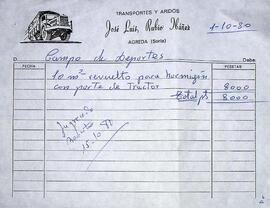 TRANSPORTES Y ARIDOS
José Luis Rubio Ibáñez
AGREDA (Soria)
1-10-80
D. Campo de Deportes
FECHA PESETAS
10 m³ revuelto para hormigón
con porte de Tractor 8000
Total pts 8000
15.10.80